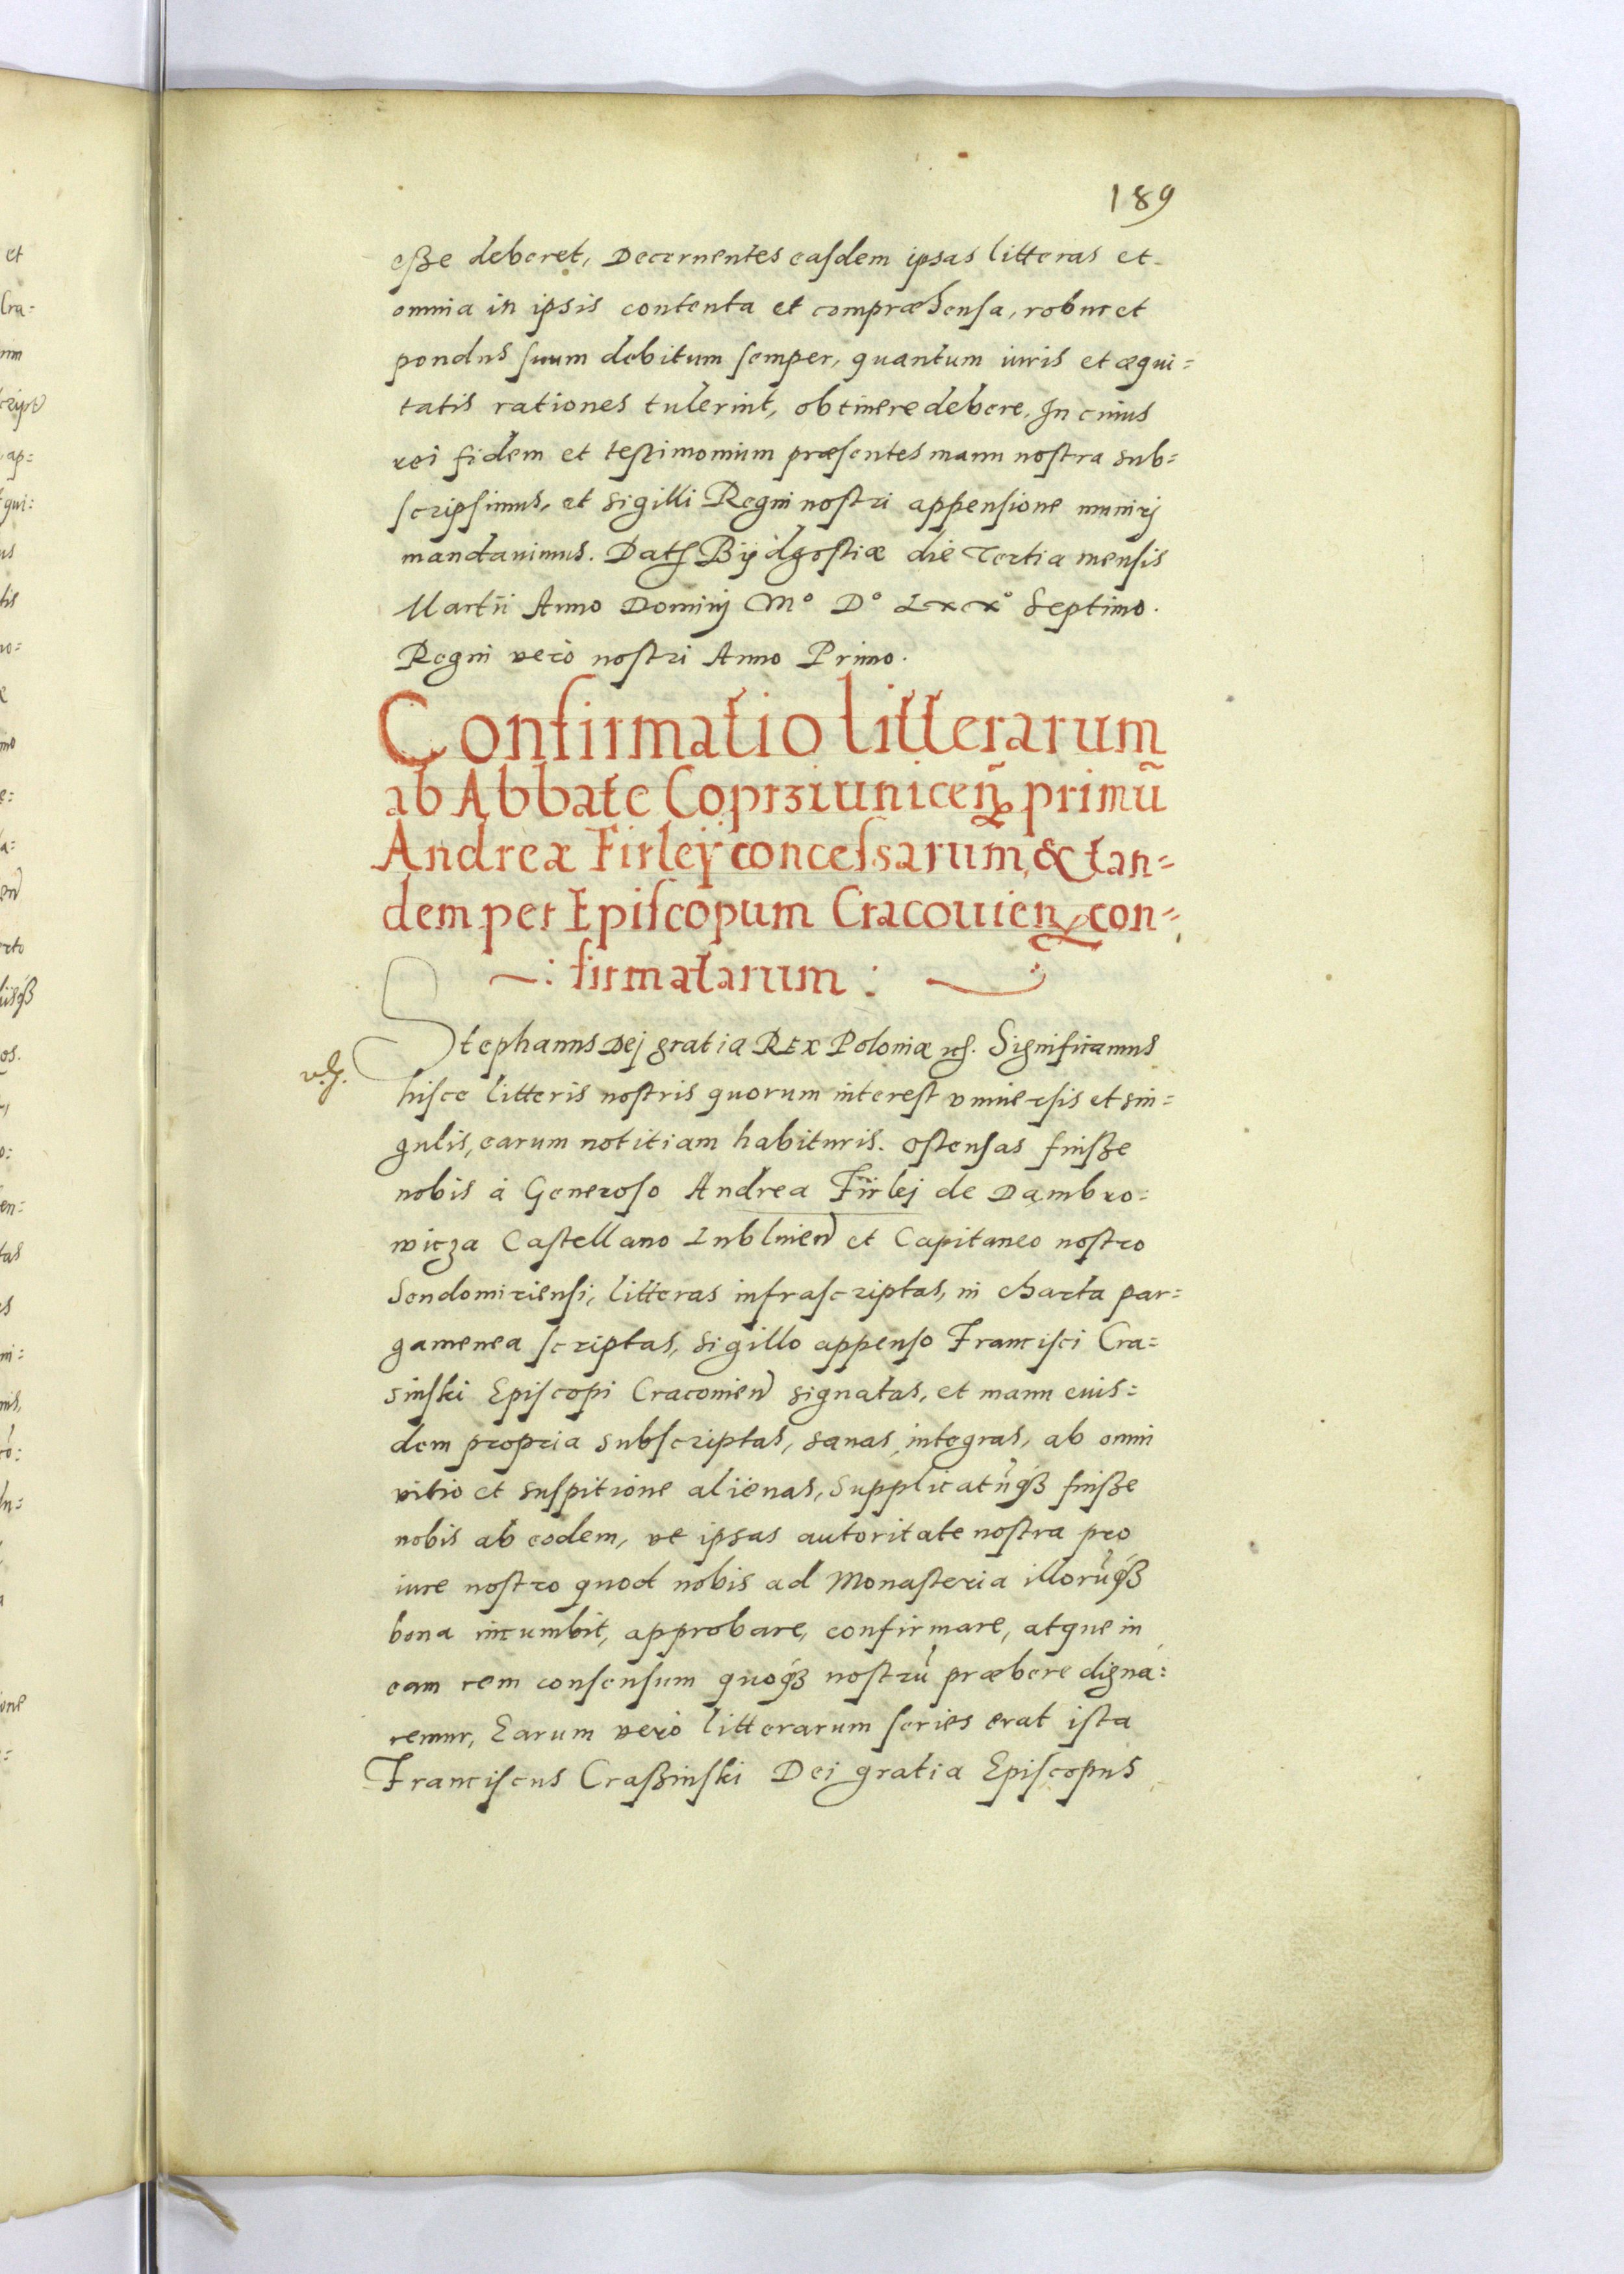 189
esße deberet, Decernentes easdem ipsas litteras et
omnia in ipsis contenta et compræhensa, robur et
pondus suum debitum semper, quantum iuris et æqui=
tatis rationes tulerint, obtinere debere. In cuius
rei fidem et testimonium præsentes manu nostra sub=
scripsimus, et sigilli Regni nostri appensione munirj
mandauimus. Dat Bÿdgostiæ die Tertia mensis
Martii Anno Dominj Mº Dº Lxxº Septimo.
Regni verò nostri Anno Primo.
Confirmatio litterarum
ab Abbate Coprziuniceñ primũ
Andreæ Firleÿ concessarum, & tan=
dem per Episcopum Cracouien con=
firmatarum:
Stephanus Dej gratia REX Poloniæ Significamus
hisce litteris nostris quorum interest vniuersis et sin=
gulis, earum notitiam habituris. Ostensas fuisße
nobis à Generoso Andrea Firlej de Dambro=
wicza Castellano Lublinen et Capitaneo nostro
Sendomiriensi, litteras infrascriptas, in charta par=
gamenea scriptas, sigillo appenso Francisci Cra=
sinski Episcopi Cracouien signatas, et manu eius=
dem propria subscriptas, sanas, integras, ab omni
vitio et suspitione alienas, Supplicatũqꝫ fuisße
nobis ab eodem, vt ipsas autoritate nostra pro
iure nostro quod nobis ad Monasteria illorũqꝫ
bona incumbit, approbare, confirmare, atque in
eam rem consensum quoqꝫ nostrũ præbere digna=
remur, Earum verò litterarum series erat ista
Franciscus Craßinski Dei gratia Episcopus